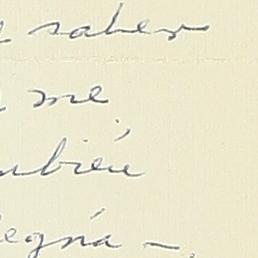 saber
me
mbién
egná-